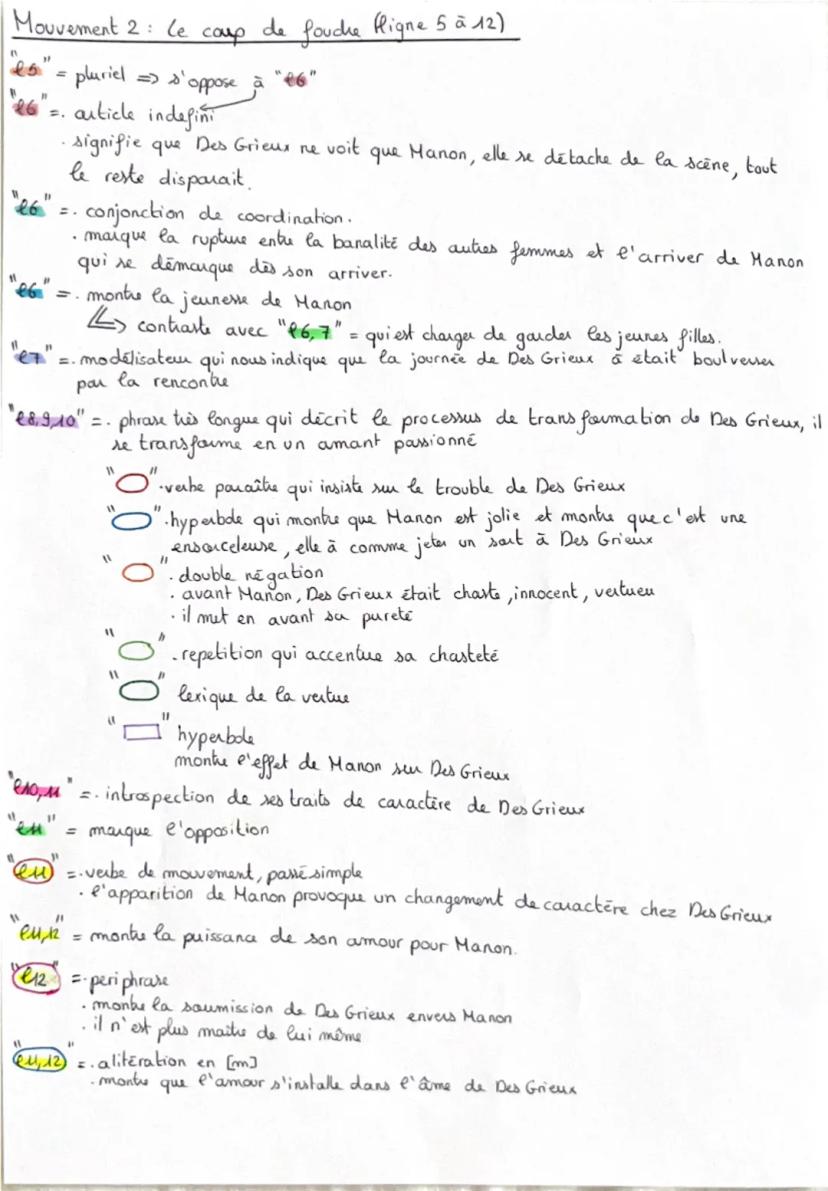 Mouvement 2 : Le coup de foudre (ligne 5 à 12)
"l5" = pluriel => s'oppose à "l6"
"l6" =. article indefini
. signifie que Des Grieux ne voit que Manon, elle se détache de la scène, tout
le reste disparait.
"l6" =. conjonction de coordination.
. marque la rupture entre la banalité des autres femmes et l'arriver de Manon
qui se démarque dès son arriver.
"l6" =. montre la jeunesse de Manon
contraste avec "l6,7" = qui est charger de garder les jeunes filles.
"l7" =. modélisateur qui nous indique que la journée de Des Grieux à était boulverser
par la rencontre
"l8,9,10" =. phrase très longue qui décrit le processus de transformation de Des Grieux, il
se transforme en un amant passionné
" " . verbe paraître qui insiste sur le trouble de Des Grieux
" " . hyperbole qui montre que Manon est jolie et montre que c'est une
ensorceleuse, elle à comme jeter un sort à Des Grieux
" " . double négation
. avant Manon, Des Grieux était chaste, innocent, vertueu
. il met en avant sa pureté
" " . repetition qui accentue sa chasteté
" " lexique de la vertue
" " hyperbole
montre l'effet de Manon sur Des Grieux
"l10,11" =. introspection de ses traits de caractère de Des Grieux
"l11" = marque l'opposition
"l11" =. verbe de mouvement, passé simple
. l'apparition de Manon provoque un changement de caractère chez Des Grieux
"l11,12" = montre la puissance de son amour pour Manon.
"l12" =. periphrase
. montre la soumission de Des Grieux envers Manon
. il n'est plus maitre de lui même
"l11,12" =. alitération en [m]
. montre que l'amour s'installe dans l'âme de Des Grieux